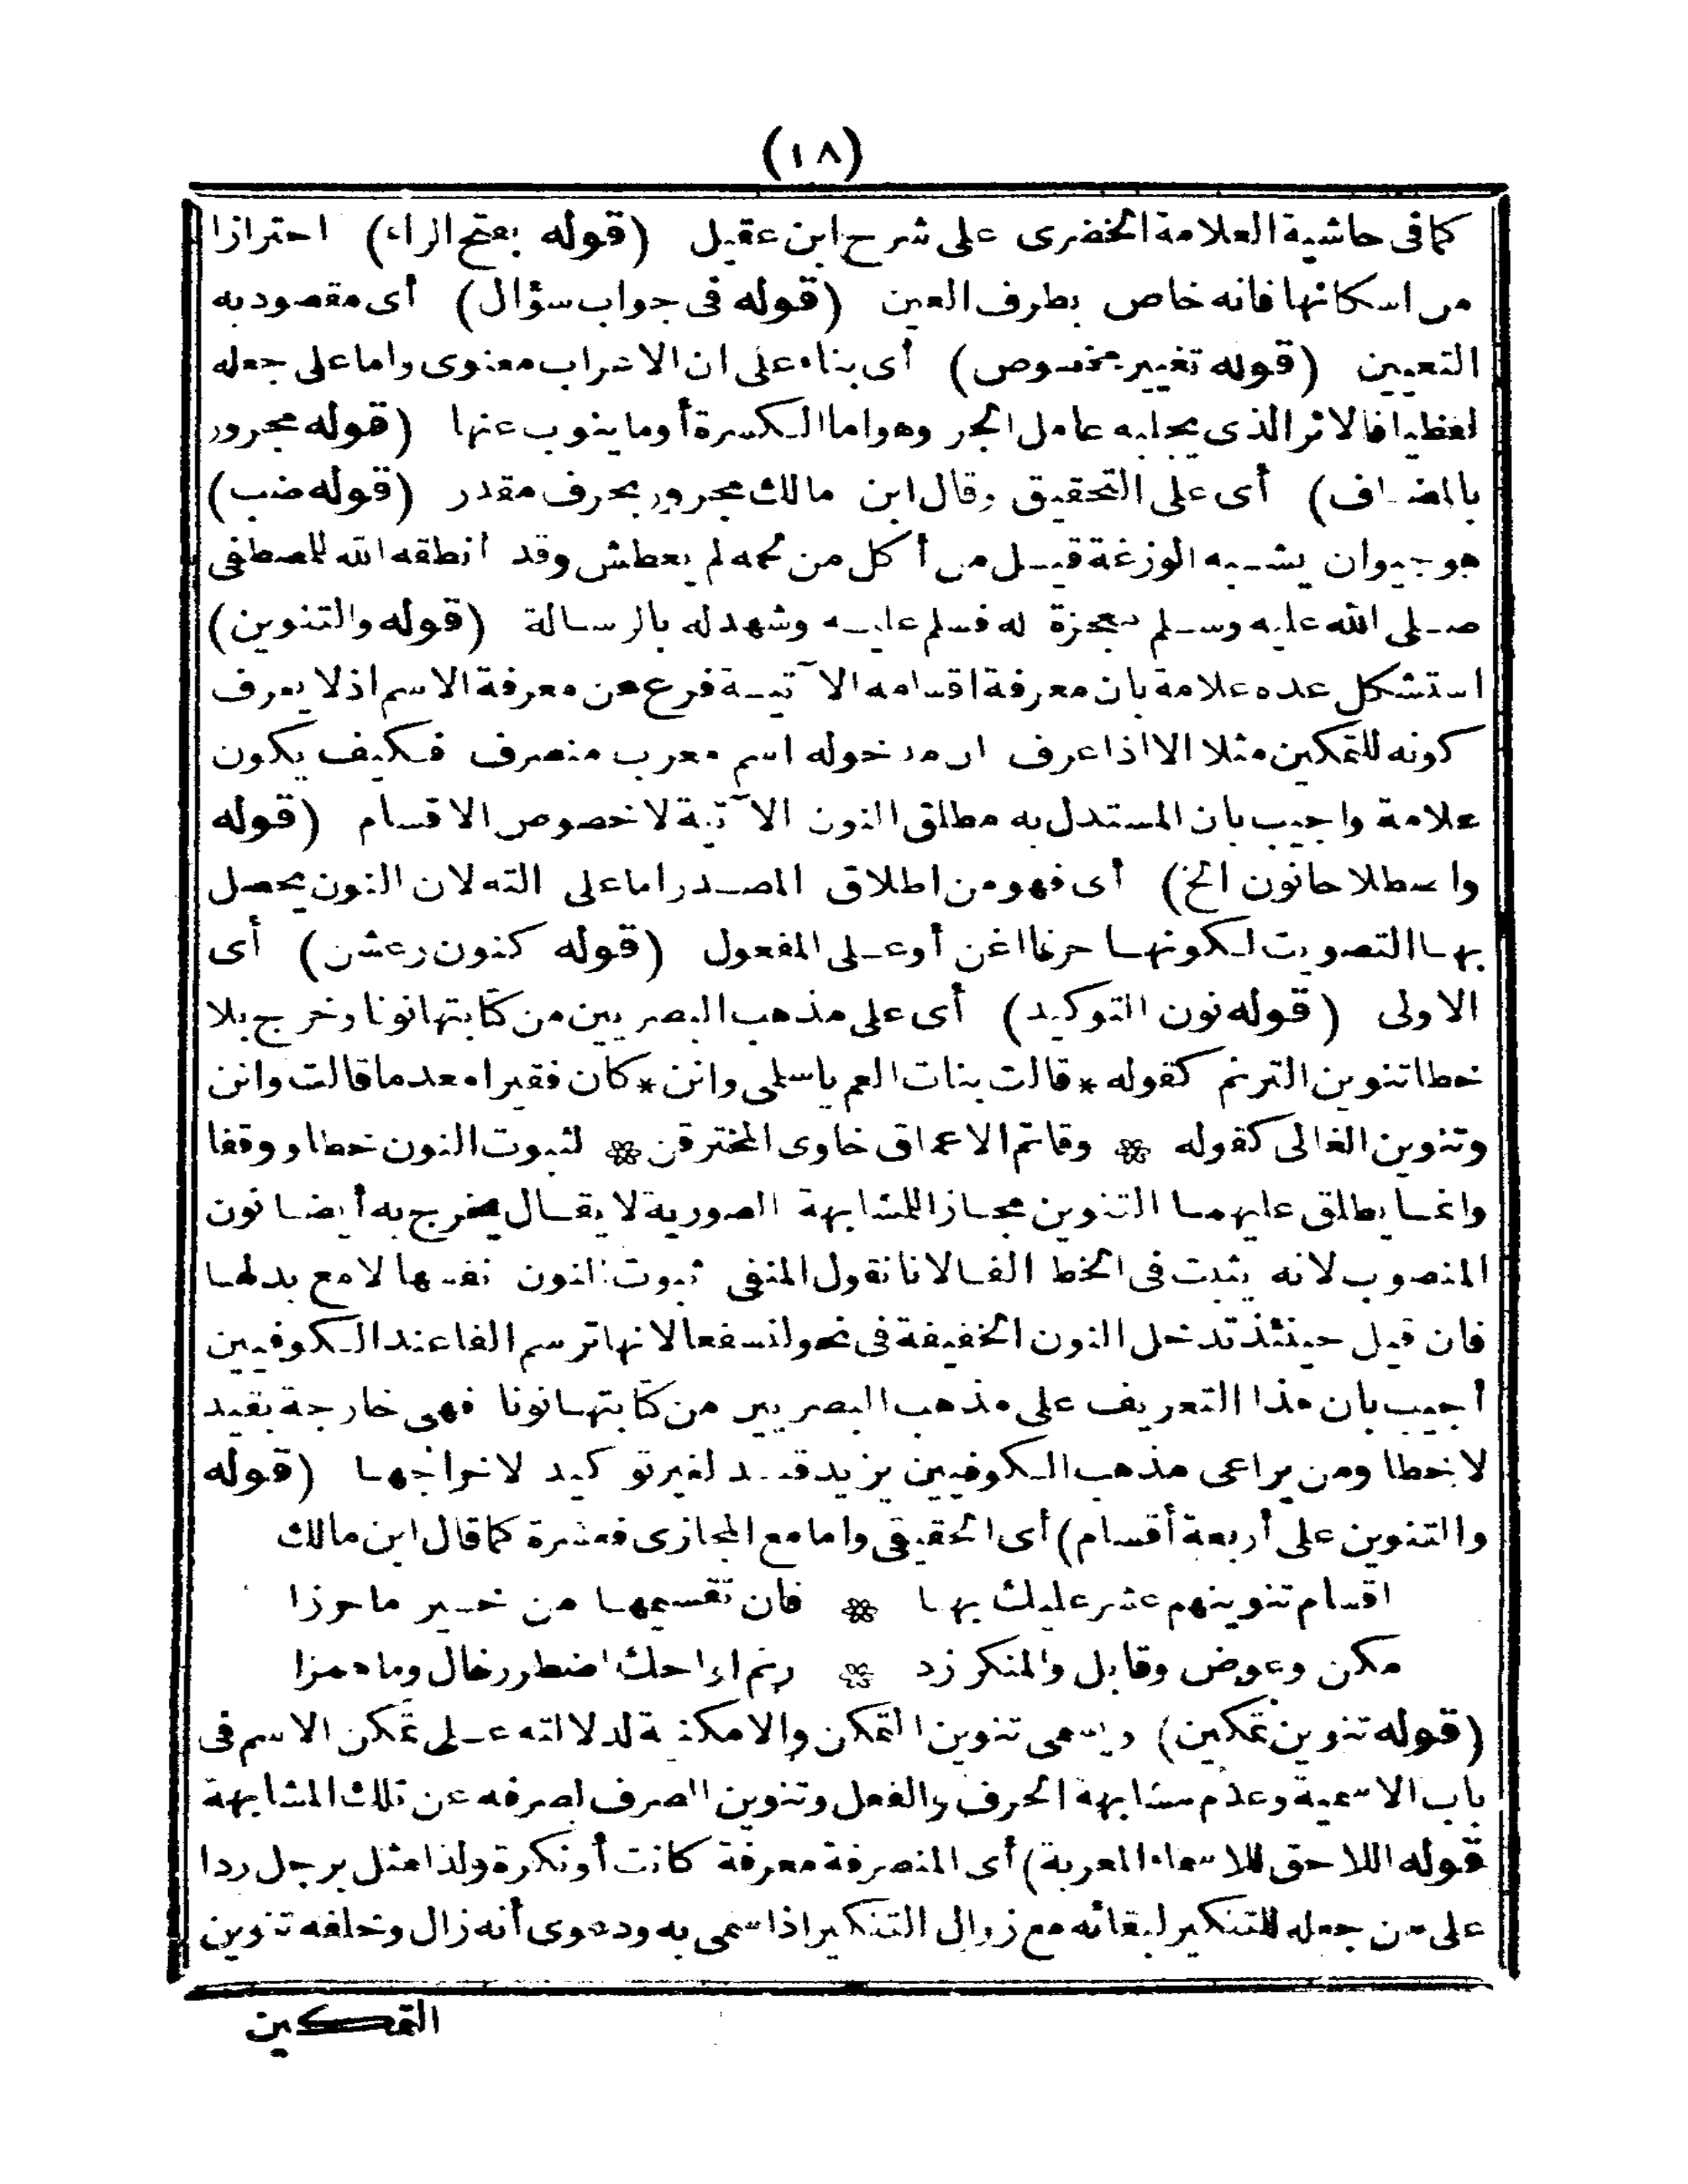 (١٨)
كما فى حاشية العلامة الخضرى على شرح ابن عقيل (قوله بفتح الراء) احترازا
من اسكانها فانه خاص بطرف العين (قوله فى جواب سؤال) أى مقصود به
التعيين (قوله تغيير مخصوص) أى بناء على ان الاعراب معنوى واما على جعله
لفظيا فالاثر الذى يجلبه عامل الجر وهو اما الكسرة أو ما ينوب عنها (قوله مجرور
بالمضاف) أى على التحقيق وقال ابن مالك مجرور بحرف مقدر (قوله ضب)
هو حيوان يشبه الوزغة قيل من أكل من لحمه لم يعطش وقد انطقه الله للمصطفى
صلى الله عليه وسلم معجزة له فسلم عليه وشهد له بالرسالة (قوله والتنوين)
استشكل عده علامة بان معرفة اقسامه الآتية فرع عن معرفة الاسم اذ لا يعرف
كونه للتمكين مثلا الا اذا عرف ان مدخوله اسم معرب منصرف فكيف يكون
علامة واجيب بان المستدل به مطلق النون الآتية لا خصوص الاقسام (قوله
واصطلاحا نون الخ) أى فهو من اطلاق المصدر اما على آلته لان النون يحصل
بها التصويت لكونها حرفا اغن أو على المفعول (قوله كنون رعشن) أى
الاولى (قوله نون التوكيد) أى على مذهب البصريين من كتابتها نونا وخرج بلا
خطا تنوين الترنم كقوله * قالت بنات العم يا سلمى وانن * كان فقيرا معدما قالت وانن
وتنوين الغالى كقوله * وقاتم الاعماق خاوى المخترقن * لثبوت النون خطا ووقفا
وانما يطلق عليهما التنوين مجازا للمشابهة الصورية لا يقال يخرج به أيضا نون
المنصوب لانه يثبت فى الخط الفا لانا نقول المنفى ثبوت النون نفسها لا مع بدلها
فان قيل حينئذ تدخل النون الخفيفة فى نحو لنسفعا لانها ترسم الفا عند الكوفيين
أجيب بان هذا التعريف على مذهب البصريين من كتابتها نونا فهى خارجة بقيد
لا خطا ومن يراعى مذهب الكوفيين يزيد قيد لغير توكيد لاخراجها (قوله
والتنوين على أربعة أقسام) أى الحقيقى واما مع المجازى فعشرة كما قال ابن مالك
اقسام تنوينهم عشر عليك بها * فان تقسيمها من خير ما حرزا
مكن وعوض وقابل والمنكر زد * رنم او احك اضطرر غال وما همزا
(قوله تنوين تمكين) ويسمى تنوين التمكن والامكنية لدلالته على تمكن الاسم فى
باب الاسمية وعدم مشابهة الحرف والفعل وتنوين الصرف لصرفه عن تلك المشابهة
قوله اللاحق للاسماء المعربة) أى المنصرفة معرفة كانت أو نكرة ولذا مثل برجل ردا
على من جعله للتنكير لبقائه مع زوال التنكير اذا سمى به ودعوى أنه زال وخلفه تنوين
التمكين